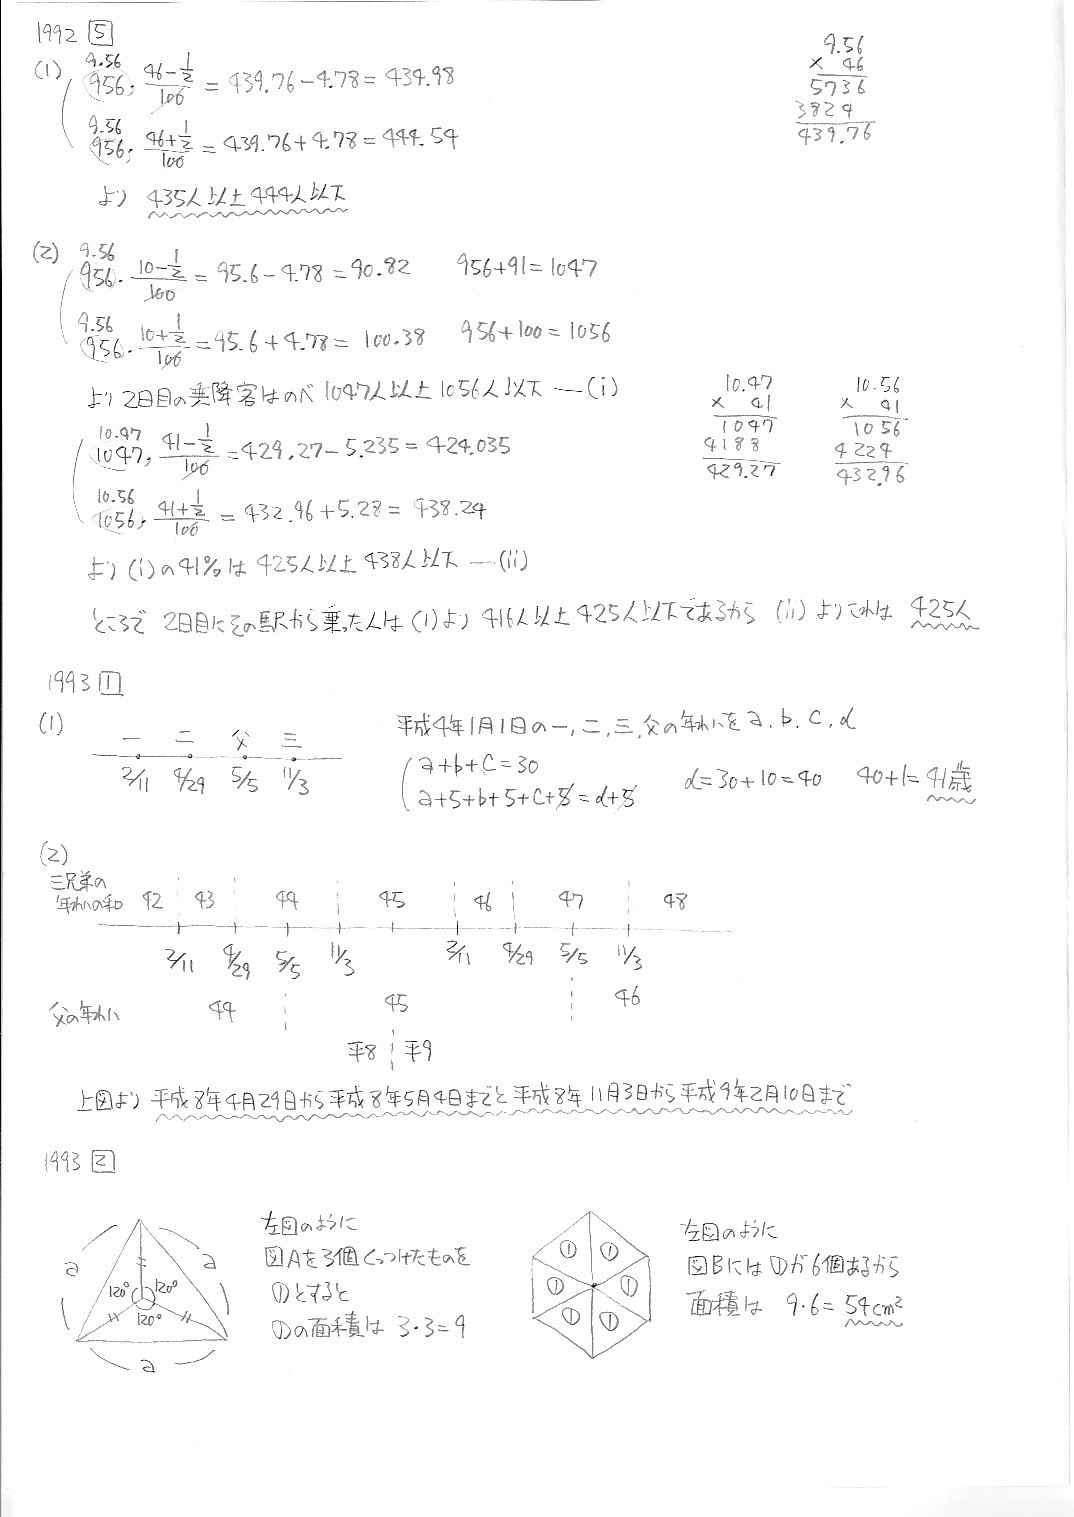 1992 5
(1) 9.56 956・(46-1/2)/100 = 439.76-4.78=434.98
9.56 956・(46+1/2)/100 = 439.76+4.78=444.54
より 435人以上444人以下
9.56
× 46
5736
3824
439.76
(2) 9.56 956・(10-1/2)/100 = 95.6-4.78=90.82 956+91=1047
9.56 956・(10+1/2)/100 = 95.6+4.78= 100.38 956+100=1056
より 2日目の乗降客はのべ1047人以上1056人以下 ―(i)
10.47 1047・(41-1/2)/100 =429.27-5.235=424.035
10.56 1056・(41+1/2)/100 = 432.96+5.28= 438.24
10.47
× 41
1047
4188
429.27
10.56
× 41
1056
4224
432.96
より(i)の41%は425人以上438人以下 ―(ii)
ところで 2日目にその駅から乗った人は(1)より416人以上425人以下であるから (ii)よりそれは 425人
1993 1
(1)
一 二 父 三
2/11 4/29 5/5 11/3
平成4年1月1日の一,二,三,父の年れいをa,b,c,d
a+b+c=30
a+5+b+5+c+5=d+5
d=30+10=40 40+1=41歳
(2)
三兄弟の
年れいの和 42 43 44 45 46 47 48
2/11 4/29 5/5 11/3 2/11 4/29 5/5 11/3
父の年れい 44 45 46
平8 平9
上図より 平成8年4月29日から平成8年5月4日までと平成8年11月3日から平成9年2月10日まで
1993 2
a a
120° 120°
120°
a
左図のように
図Aを3個くっつけたものを
①とすると
①の面積は 3・3=9
① ①
① ①
① ①
左図のように
図Bには①が6個あるから
面積は 9・6=54cm²